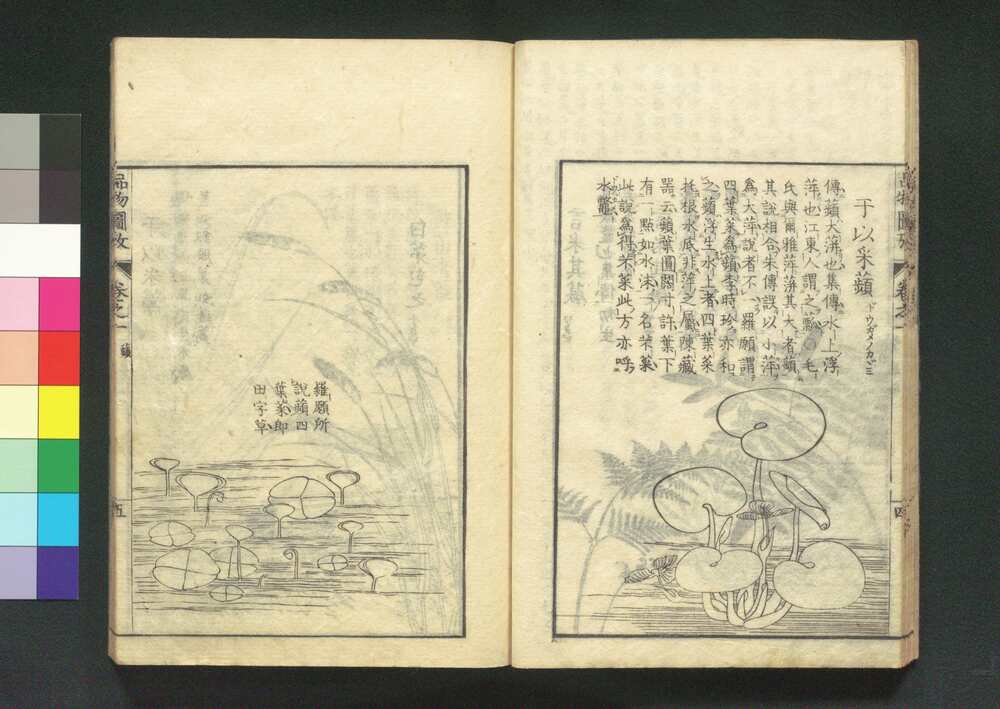 品物圖攷 卷之一 四
于以采蘋
傳蘋大蓱也集傳水上浮
萍也江東人謂之薸〇毛
氏與爾雅萍蓱其大者蘋
其說相合朱傳誤以小萍
爲大萍說者不一羅願謂
四葉菜爲蘋李時珍亦和
之蘋浮生水上者四葉菜
托根水底非萍之屬陳藏
器云蘋葉圓闊寸許葉下
有一點如水沫一名芣菜
此說爲得芣菜此方亦呼
水鼈
羅願所
說蘋四
葉菜即
田字草
品物圖攷 卷之一 蘋 五